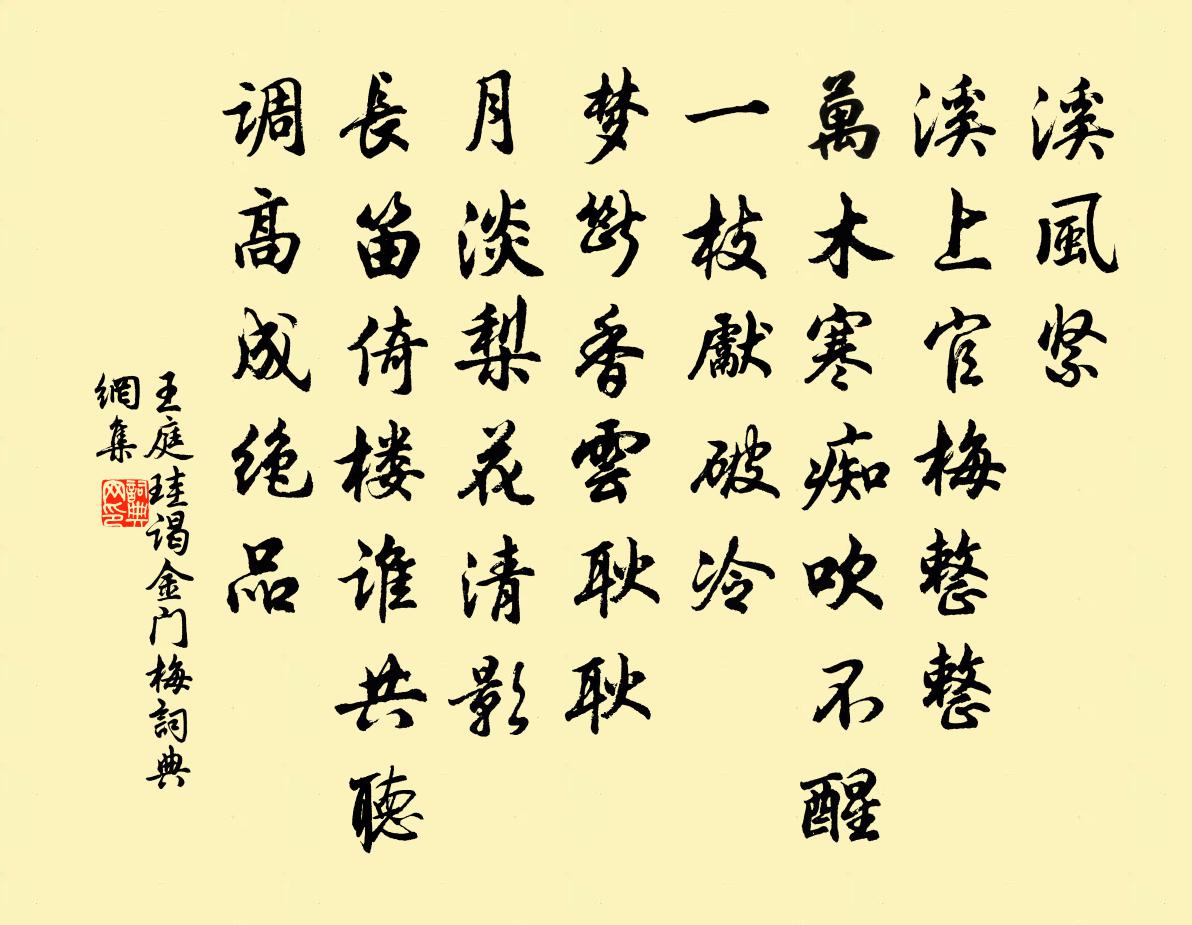 溪風紧
溪上官梅整整
萬木寒痴吹不醒
一枝獻破冷
梦斷香雲耿耿
月淡梨花清影
長笛倚楼谁共聽
调高成绝品
王庭珪谒金门梅詞典
網集
詞典
网印